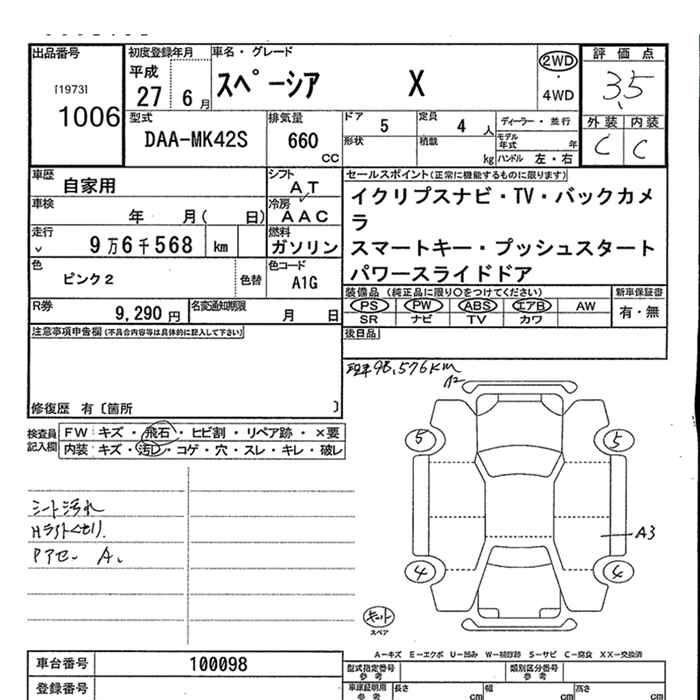 出品番号
[1973]
1006
初度登録年月
平成
27 6 月
車名・グレード
スペーシア X
2WD
・
4WD
評価点
3.5
外装 内装
C C
型式
DAA-MK42S
排気量
660
CC
ドア 5
定員 4 人
ディーラー・並行
形状
積載 kg
モデル年式 年
ハンドル 左・右
車歴
自家用
シフト
AT
車検
年 月( 日)
冷房
AAC
走行
9万6千568 km
燃料
ガソリン
色
ピンク2
色替
色コード
A1G
R券
9,290 円
名変通知期限
月 日
セールスポイント(正常に機能するものに限ります)
イクリプスナビ・TV・バックカメ
ラ
スマートキー・プッシュスタート
パワースライドドア
装備品(純正品に限り○をつけてください)
PS PW ABS エアB AW
SR ナビ TV カワ
新車保証書
有・無
後日品
注意事項申告欄(不具合内容等は具体的に記入して下さい)
修復歴 有〔箇所 〕
検査員
記入欄
FW キズ・飛石・ヒビ割・リペア跡・×要
内装 キズ・汚れ・コゲ・穴・スレ・キレ・破レ
シート汚れ
Hライトくもり
98,576km
5 5
A3
4 4
キット
スペア
A-キズ E-エクボ U-凹み W-補修跡 S-サビ C-腐食 XX-交換済
車台番号
100098
登録番号
型式指定番号
参考
類別区分番号
参考
車庫証明用
参考
長さ cm
幅 cm
高さ cm